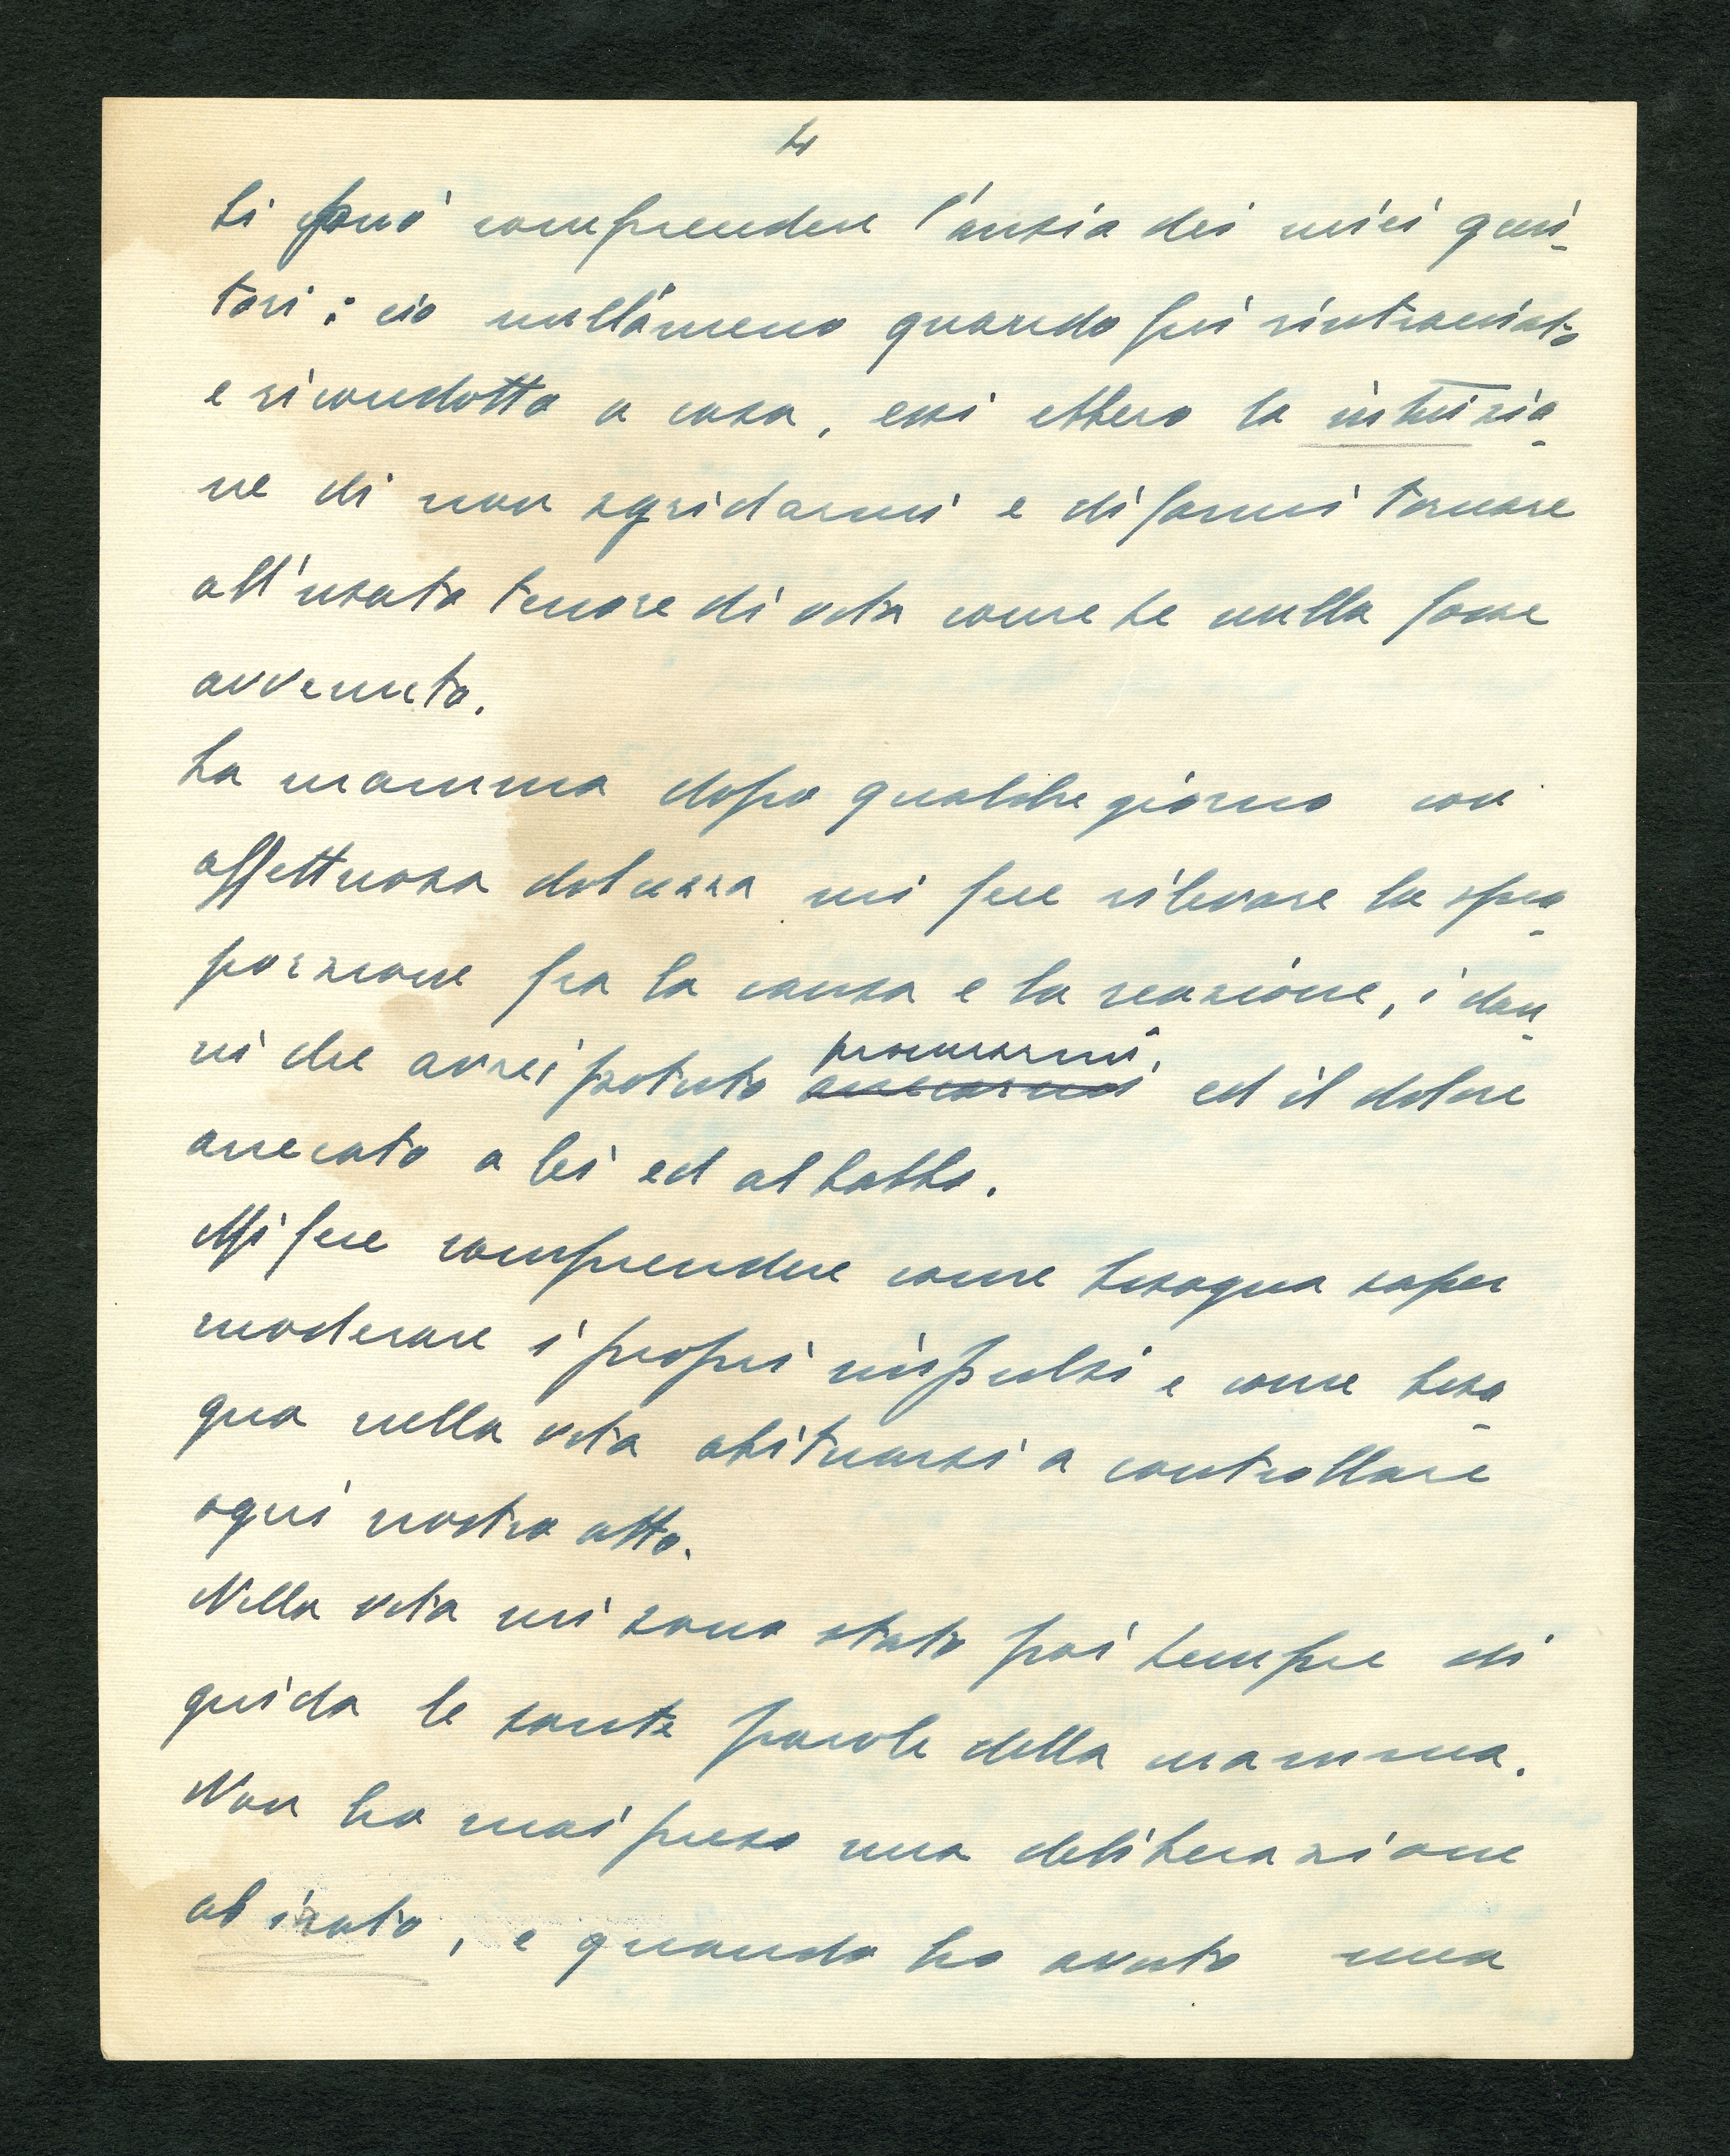 4
Si può comprendere l'ansia dei miei geni-
tori; ciò nullameno quando fui rintracciato
e ricondotto a casa, essi ebbero la intuizio-
ne di non sgridarmi e di farmi tornare
all'usato tenore di vita come se nulla fosse
avvenuto.
La mamma dopo qualche giorno con
affettuosa dolcezza mi fece rilevare la spro-
porzione fra la causa e la reazione, i dan-
ni che avrei potuto procurarmi, ed il dolore
arrecato a lei ed al babbo.
Mi fece comprendere come bisogna saper
moderare i propri impulsi e come biso-
gna nella vita abituarsi a controllare
ogni nostro atto.
Nella vita mi sono state poi sempre di
guida le sante parole della mamma.
Non ho mai preso una deliberazione
ab irato, e quando ho avuto una